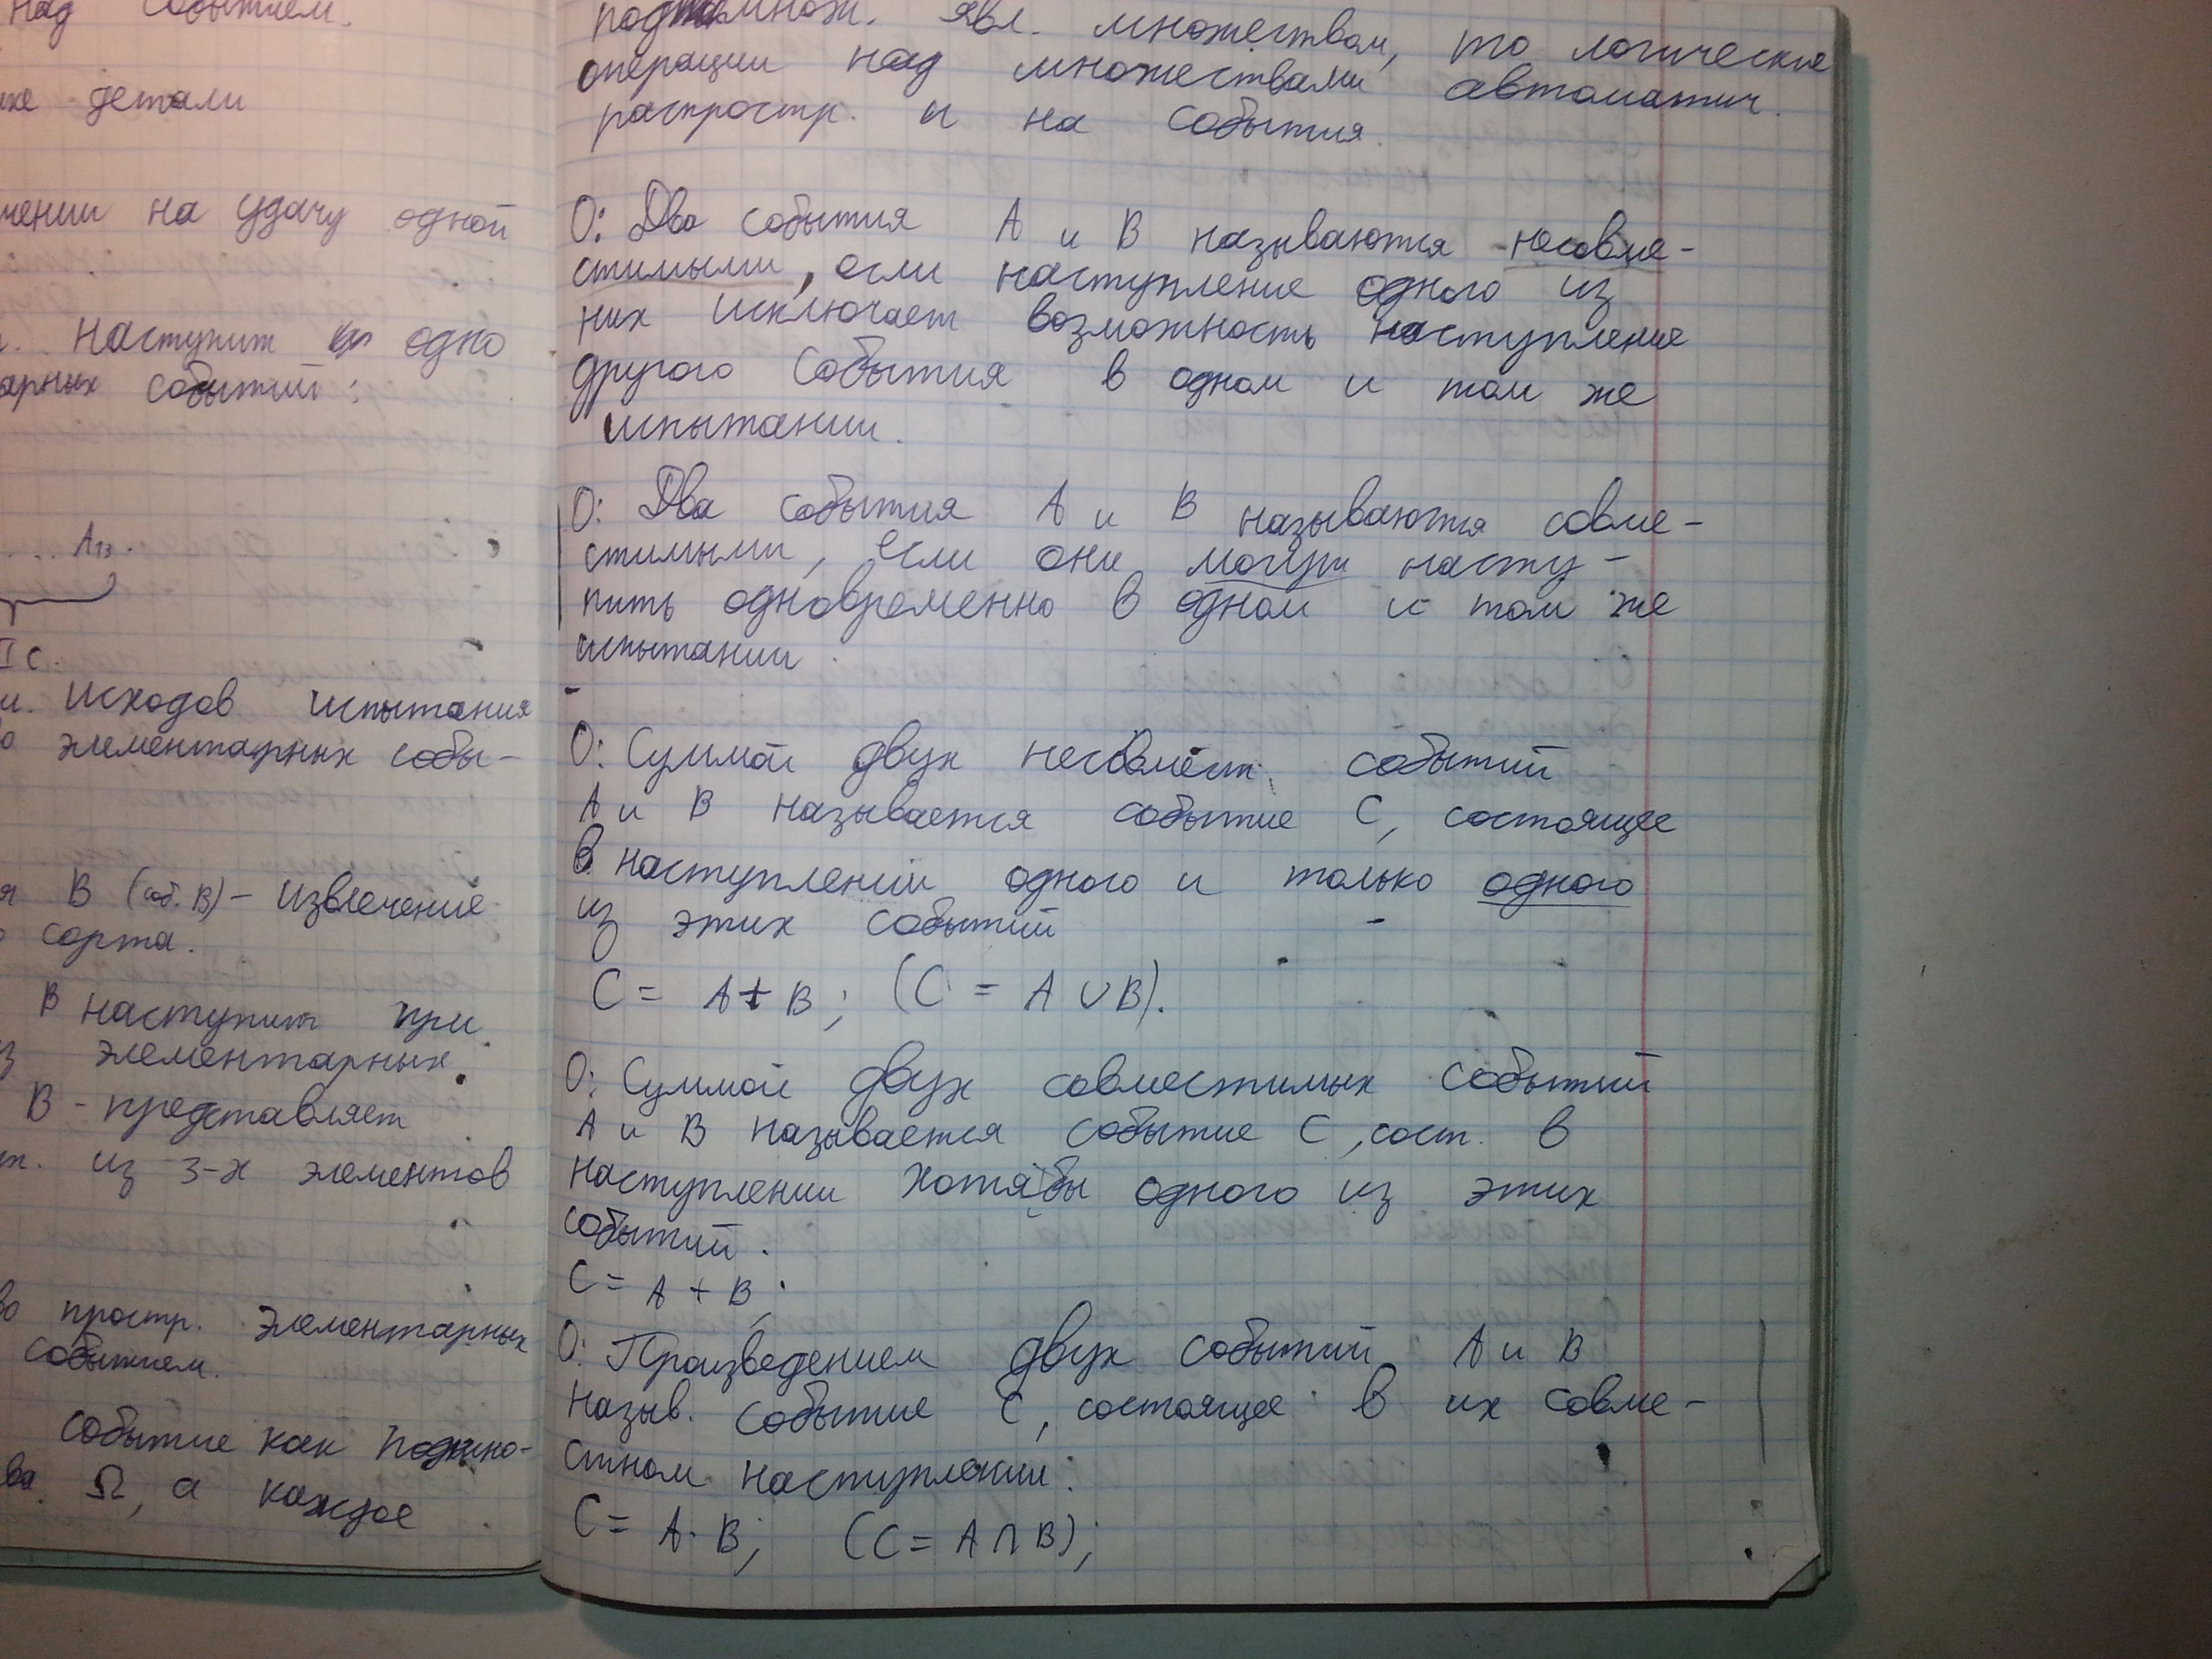 над событием.
же детали
чении на удачу одной
. наступит одно
арных событий:
... A₁₃.
I с.
и. исходов испытания
о элементарных собы-
я В (соб. В) – извлечение
о сорта.
В наступит при
з элементарных
В – представляет
т. из 3-х элементов
во простр. элементарных
событием.
событие как подмно-
ва Ω, а каждое
подмнож. явл. множеством, то логические
операции над множествами автоматич.
распростр. и на события.
О: Два события А и В называются несовме-
стимыми, если наступление одного из
них исключает возможность наступление
другого события в одном и том же
испытании.
О: Два события А и В называются совме-
стимыми, если они могут насту-
пить одновременно в одном и том же
испытании
О: Суммой двух несовмест. событий
А и В называется событие С, состоящее
в наступлении одного и только одного
из этих событий
С = А + В; (С = А ∪ В).
О: Суммой двух совместимых событий
А и В называется событие С, сост. в
наступлении хотя бы одного из этих
событий.
С = А + В;
О: Произведением двух событий А и В
назыв. событие С, состоящее в их совме-
стном наступлении:
С = А · В; (С = А ∩ В);